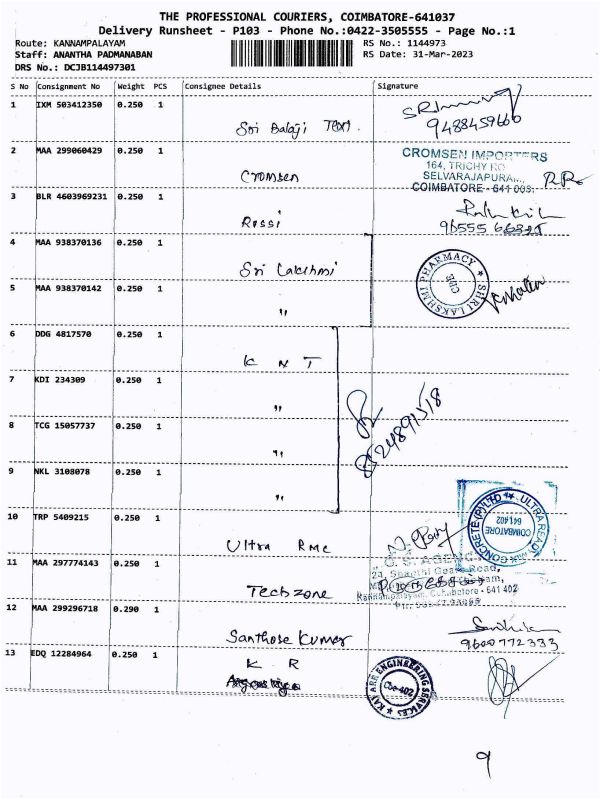 THE PROFESSIONAL COURIERS, COIMBATORE-641037
Delivery Runsheet - P103 - Phone No.:0422-3505555 - Page No.:1
Route: KANNAMPALAYAM
RS No.: 1144973
Staff: ANANTHA PADMANABAN
RS Date: 31-Mar-2023
DRS No.: DCJB114497301
S No Consignment No Weight PCS Consignee Details Signature
1 IXM 503412350 0.250 1
Sri Balaji Text.
9488459660
2 MAA 299060429 0.250 1
Cromsen
CROMSEN IMPORTERS
164, TRICHY RO
SELVARAJAPURAM,
COIMBATORE - 641 003.
3 BLR 4603969231 0.250 1
Rossi
4 MAA 938370136 0.250 1
Sri Lakshmi
SHRI LAKSHMI PHARMACY
CBE
5 MAA 938370142 0.250 1
"
6 DDG 4817570 0.250 1
K N T
7 KDI 234309 0.250 1
"
8524891518
8 TCG 15057737 0.250 1
"
9 NKL 3108078 0.250 1
"
10 TRP 5409215 0.250 1
Ultra RMC
ULTRA READY MIX CONCRETE (P) LTD
COIMBATORE
641 402
11 MAA 297774143 0.250 1
Techzone
Road,
Kannampalayam, Coimbatore - 641 402
12 MAA 299296718 0.290 1
Santhose Kumar
9600772333
13 EDQ 12284964 0.250 1
K R
KAY ARR ENGINEERING SERVICES
Cbe-402
9